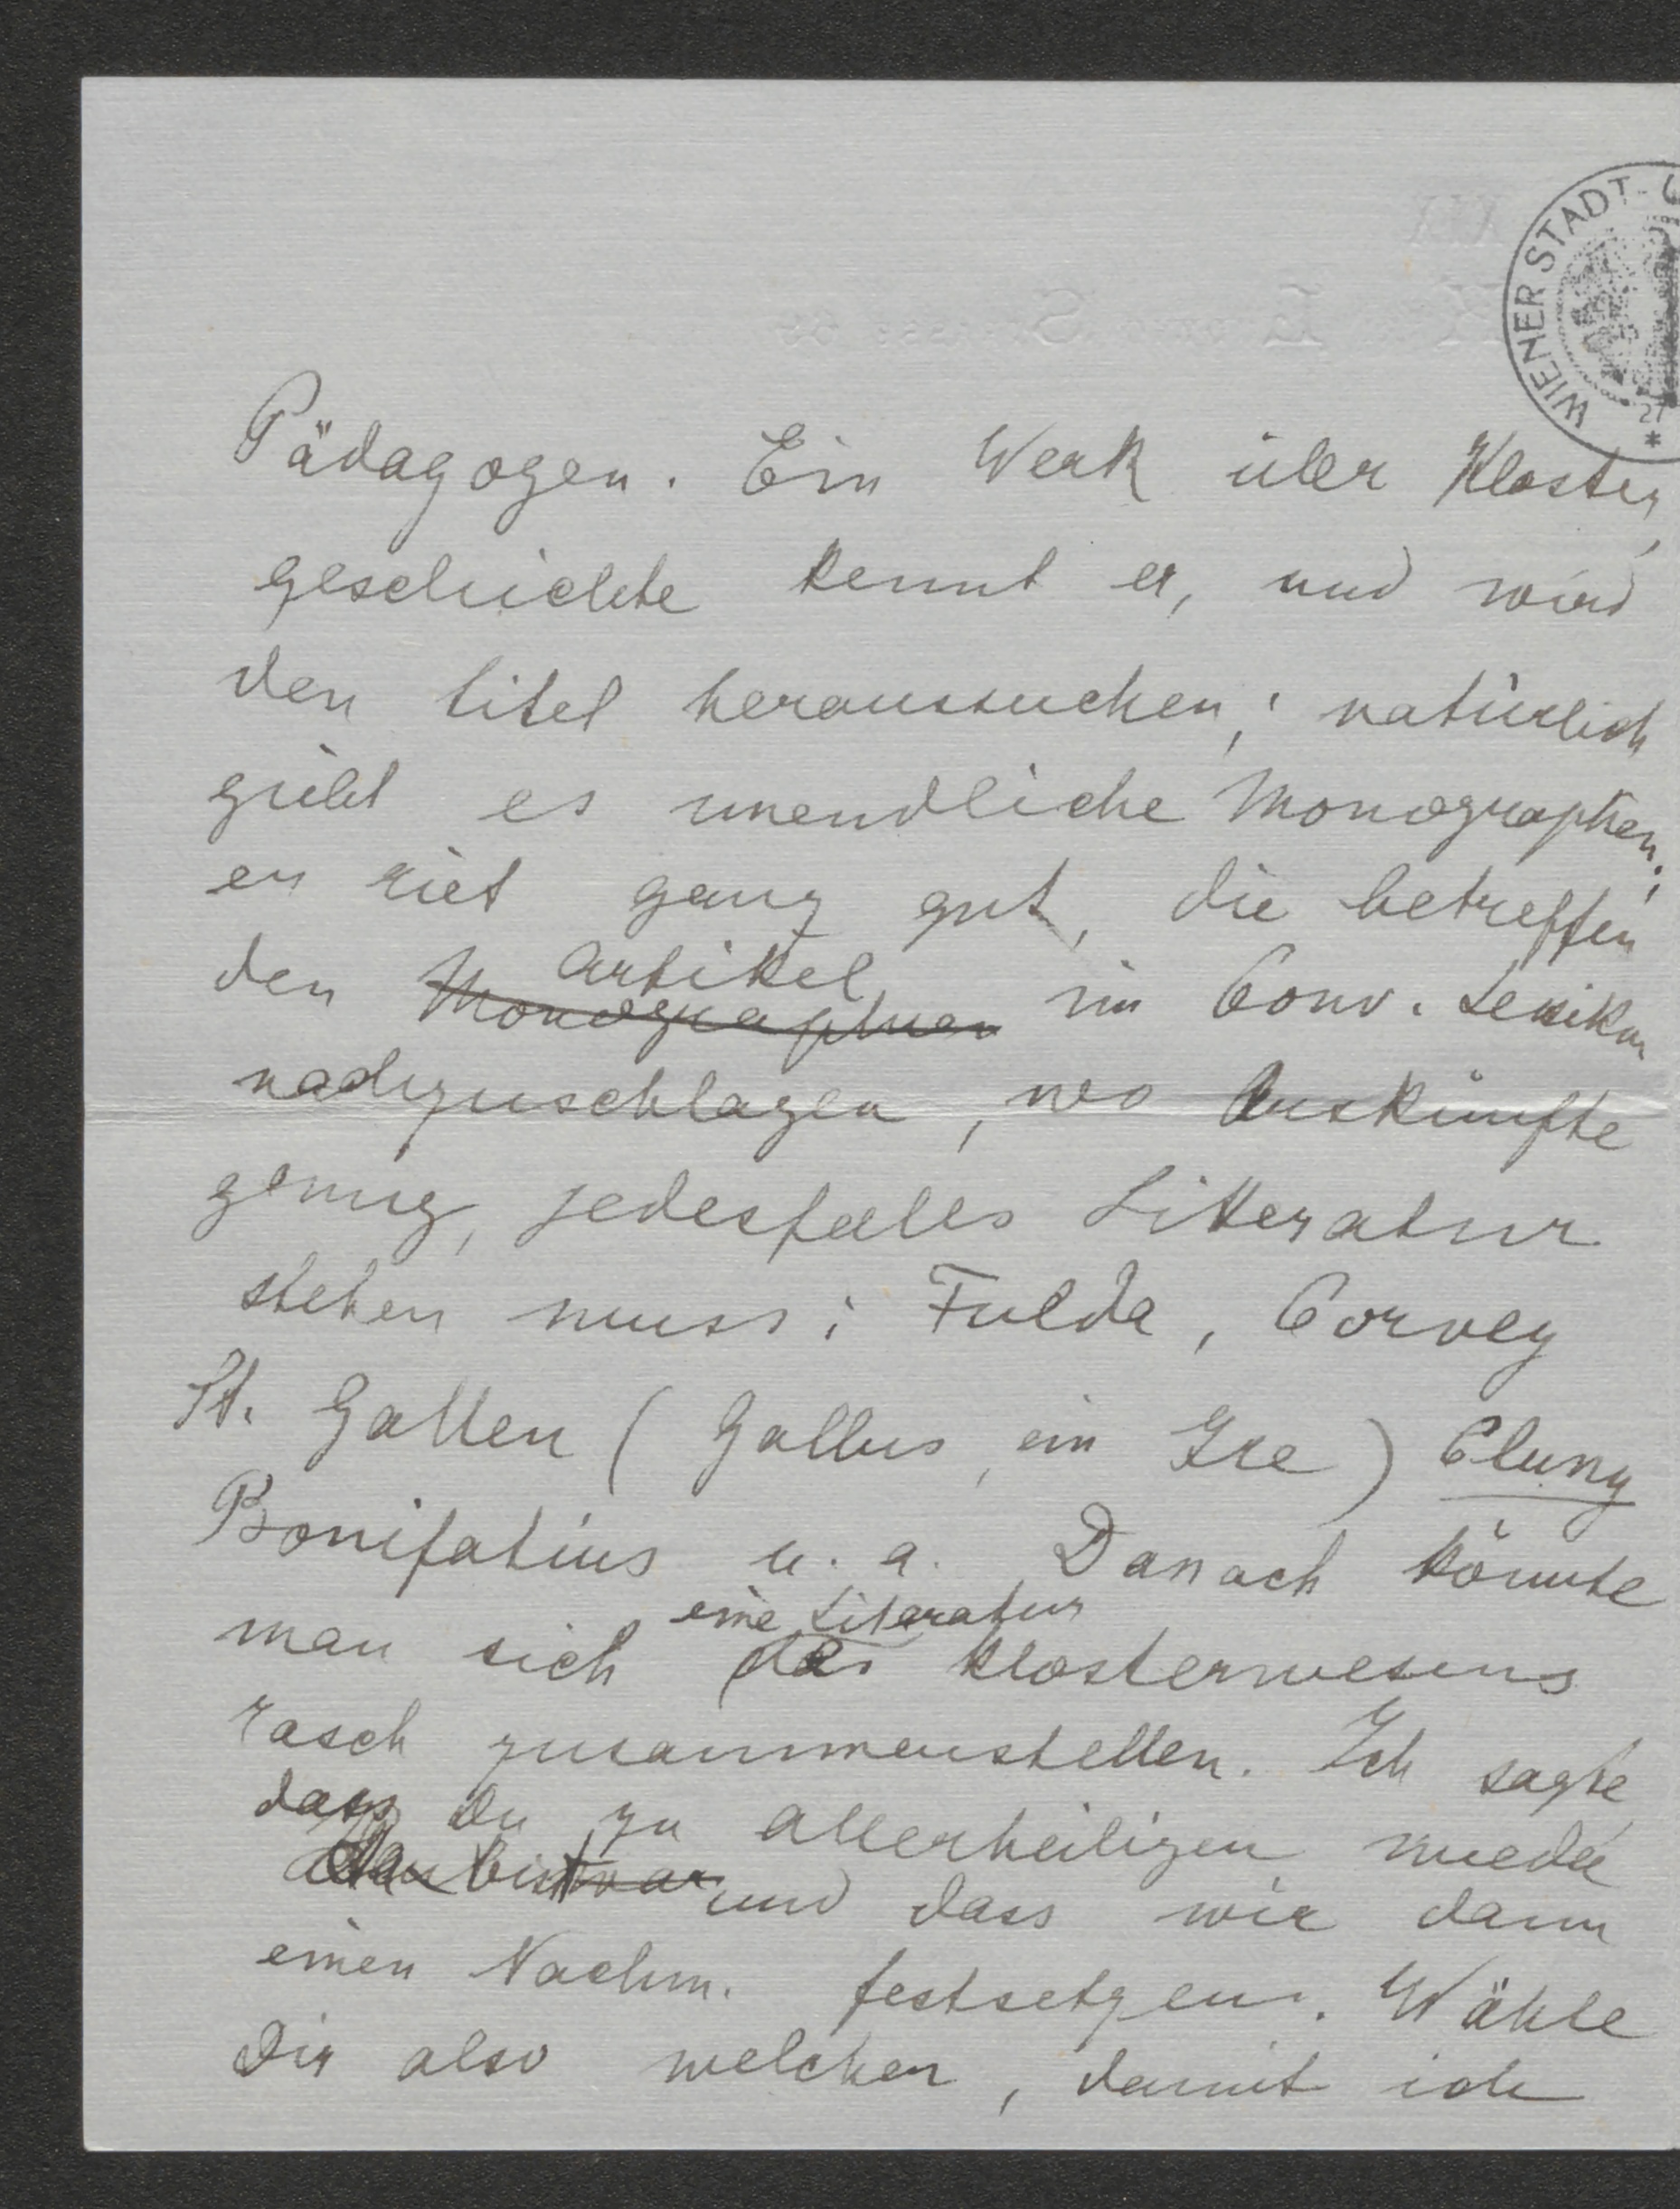 WIENER STADT-
27
Pädagogen. Ein Werk über Kloster,
geschichte kennt er, und wird
den titel heraussuchen; natürlich
giebt es unendliche Monographien;
er riet ganz gut, die betreffen
den Artikel
Monographien im Conv. Lexikon
nachzuschlagen, wo Auskünfte
genug, jedesfalls Litteratur
stehen muss: Fulda, Corvey
St. Gallen (Gallus, ein Ire) Cluny
Bonifatius u. a. Danach könnte
eine Literatur
man sich des Klosterwesens
rasch zusammenstellen. Ich sagte
dass Du zu Allerheiligen wieder
da bist und dass wir dann
einen Nachm. festsetzen. Wähle
Dir also welchen, damit ich